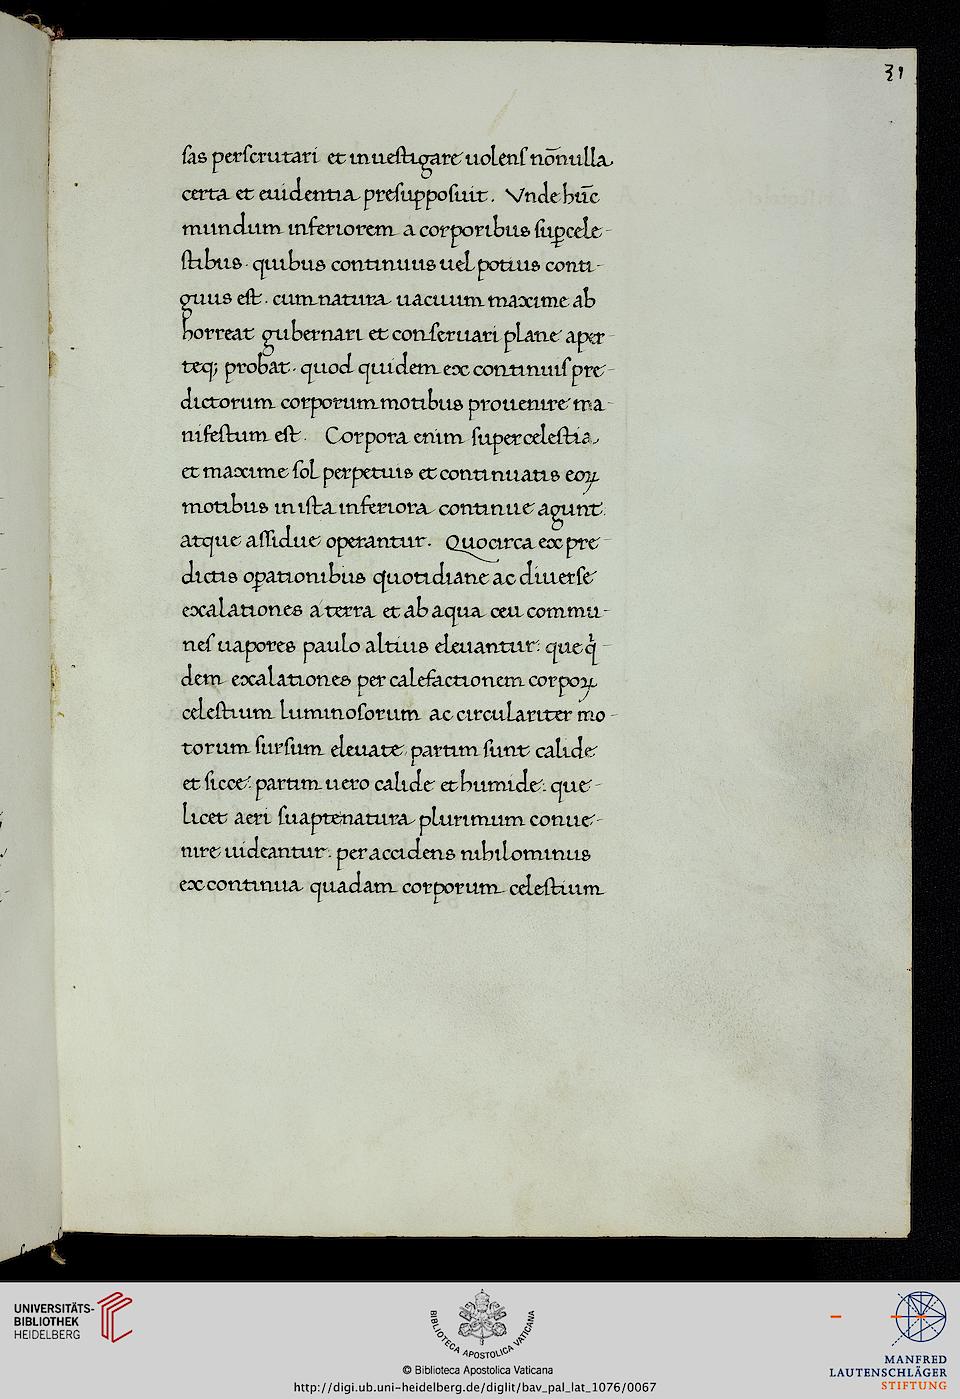 31
sas perscrutari et inuestigare uolens nōnulla
certa et euidentia presupposuit. Vnde hūc
mundum inferiorem a corporibus suꝑcele-
stibus. quibus continuus uel potius conti-
guus est. cum natura uacuum maxime ab
horreat gubernari et conseruari plane aper-
teq; probat. quod quidem ex continuis pre-
dictorum corporum motibus prouenire ma-
nifestum est. Corpora enim supercelestia
et maxime sol perpetuis et continuatis eoꝝ
motibus in ista inferiora continue agunt
atque assidue operantur. Quocirca ex pre-
dictis oꝑationibus quotidiane ac diuerse
exalationes a terra et ab aqua ceu commu-
nes uapores paulo altius eleuantur: que q̇-
dem exalationes per calefactionem corpoꝝ
celestium luminosorum ac circulariter mo-
torum sursum eleuate partim sunt calide
et sicce: partim uero calide et humide: que-
licet aeri suaptenatura plurimum conue-
nire uideantur. per accidens nihilominus
ex continua quadam corporum celestium
UNIVERSITÄTS-
BIBLIOTHEK
HEIDELBERG
BIBLIOTECA APOSTOLICA VATICANA
© Biblioteca Apostolica Vaticana
http://digi.ub.uni-heidelberg.de/diglit/bav_pal_lat_1076/0067
MANFRED
LAUTENSCHLÄGER
STIFTUNG